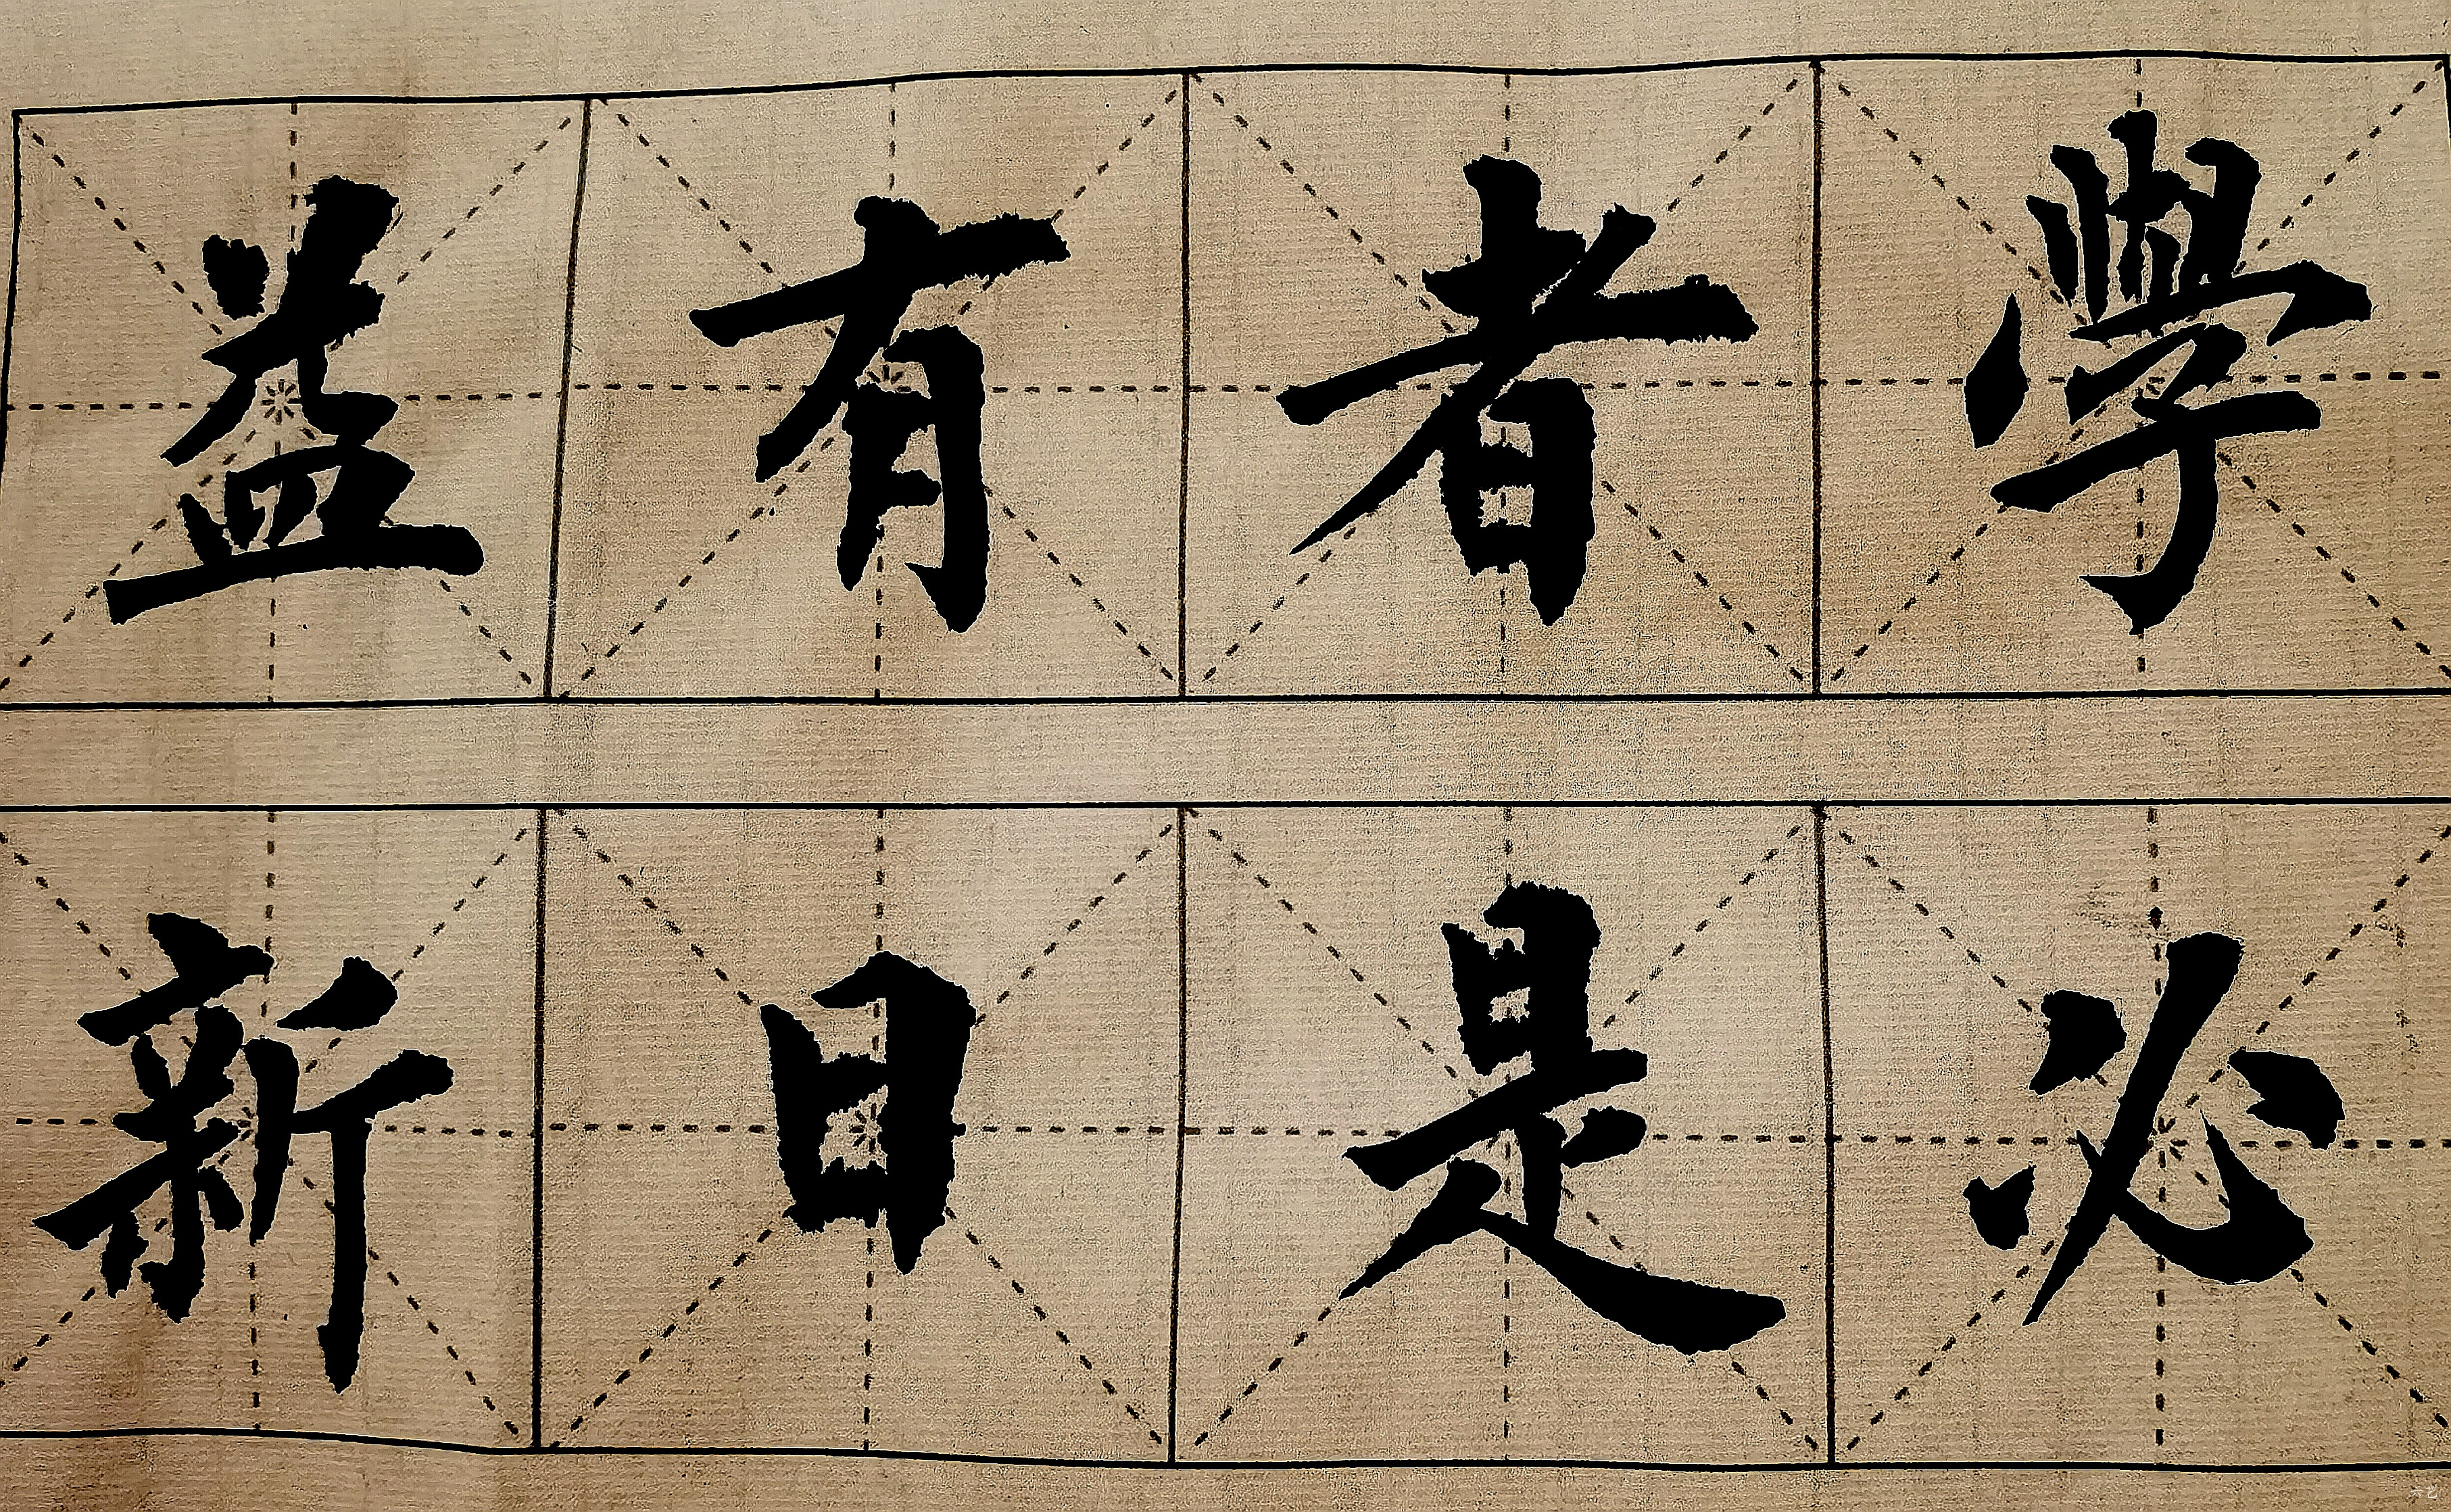 學者有益
必是日新